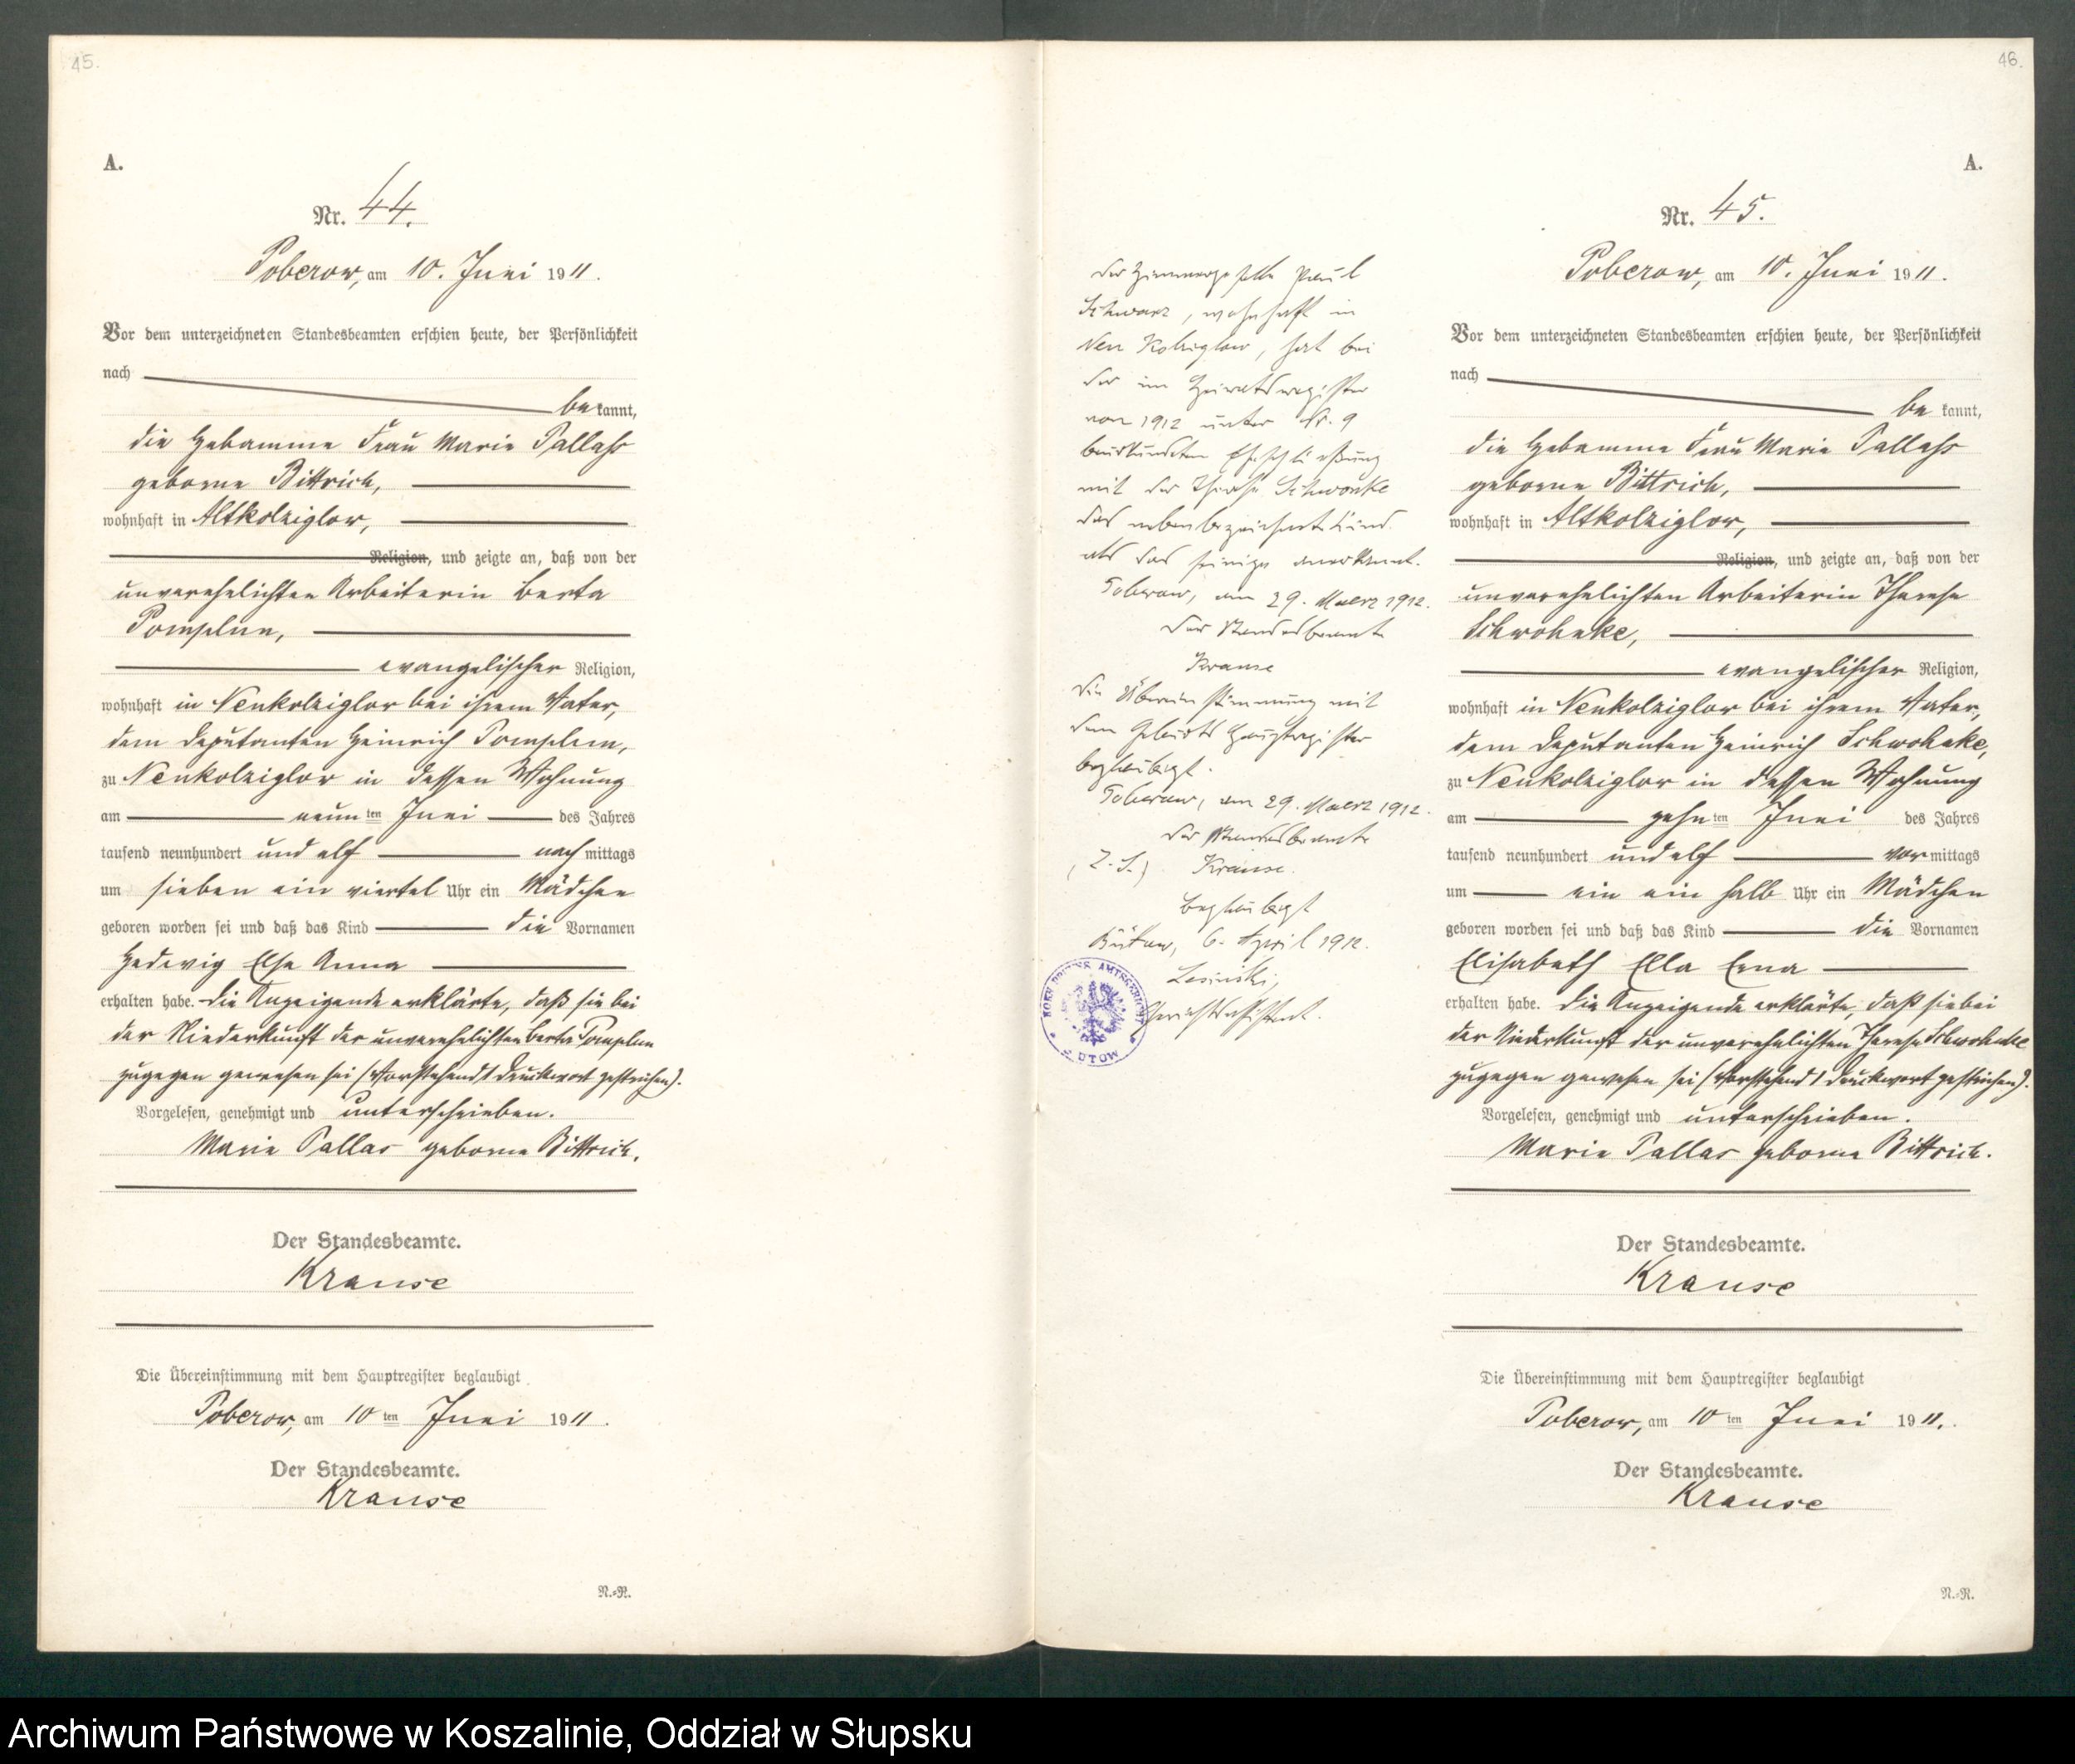 45.
A.
Nr. 44.
Poberow, am 10. Juni 1911.
Vor dem unterzeichneten Standesbeamten erschien heute, der Persönlichkeit
nach
bekannt,
die Hebamme Frau Marie Pallaß
geborne Bittrich,
wohnhaft in Altkolziglow,
Religion, und zeigte an, daß von der
unverehelichten Arbeiterin Berta
Pomplun,
evangelischer Religion,
wohnhaft in Neukolziglow bei ihrem Vater,
dem Deputanten Heinrich Pomplun,
zu Neukolziglow in dessen Wohnung
am neunten Juni des Jahres
tausend neunhundert und elf nachmittags
um sieben ein viertel Uhr ein Mädchen
geboren worden sei und daß das Kind die Vornamen
Hedwig Else Anna
erhalten habe. Die Anzeigende erklärte, daß sie bei
der Niederkunft der unverehelichten Berta Pomplun
zugegen gewesen sei (Vorstehend 1 Druckwort gestrichen).
Vorgelesen, genehmigt und unterschrieben.
Marie Pallas geborne Bittrich.
Der Standesbeamte.
Krause
Die Übereinstimmung mit dem Hauptregister beglaubigt
Poberow, am 10ten Juni 1911.
Der Standesbeamte.
Krause
N.=R.
46.
A.
Der Zimmergeselle Paul
Schwarz, wohnhaft in
Neu Kolziglow, hat bei
der im Heiratsregister
von 1912 unter Nr. 9
beurkundeten Eheschließung
mit der Therese Schwonke
das nebenbezeichnete Kind
als das seinige anerkannt.
Poberow, am 29. Maerz 1912.
Der Standesbeamte
Krause
Die Übereinstimmung mit
dem Geburts Hauptregister
beglaubigt.
Poberow, am 29. Maerz 1912.
Der Standesbeamte
(L. S.) Krause.
Beglaubigt
Bütow, 6. April 1912.
Lesinski,
Gerichtsassistent.
KOEN. PREUSS. AMTSGERICHT
BUTOW
Nr. 45.
Poberow, am 10. Juni 1911.
Vor dem unterzeichneten Standesbeamten erschien heute, der Persönlichkeit
nach
bekannt,
die Hebamme Frau Marie Pallaß
geborne Bittrich,
wohnhaft in Altkolziglow,
Religion, und zeigte an, daß von der
unverehelichten Arbeiterin Therese
Schwohnke,
evangelischer Religion,
wohnhaft in Neukolziglow bei ihrem Vater,
dem Deputanten Heinrich Schwohnke,
zu Neukolziglow in dessen Wohnung
am zehnten Juni des Jahres
tausend neunhundert und elf vormittags
um ein ein halb Uhr ein Mädchen
geboren worden sei und daß das Kind die Vornamen
Elisabeth Ella Erna
erhalten habe. Die Anzeigende erklärte, daß sie bei
der Niederkunft der unverehelichten Therese Schwohnke
zugegen gewesen sei (Vorstehend 1 Druckwort gestrichen).
Vorgelesen, genehmigt und unterschrieben.
Marie Pallas geborne Bittrich.
Der Standesbeamte.
Krause
Die Übereinstimmung mit dem Hauptregister beglaubigt
Poberow, am 10ten Juni 1911.
Der Standesbeamte.
Krause
N.=R.
Archiwum Państwowe w Koszalinie, Oddział w Słupsku